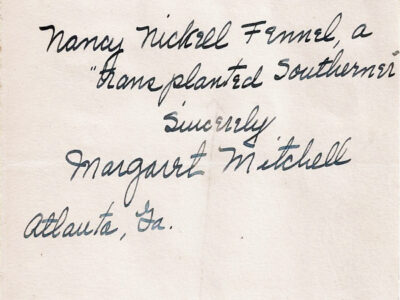 Nancy Nickell Fennel, a
"transplanted Southerner"
Sincerely
Margaret Mitchell
Atlanta, Ga.